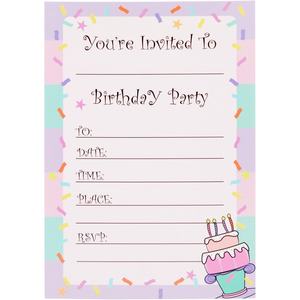 You're Invited To
Birthday Party
TO:
DATE:
TIME:
PLACE:
RSVP: